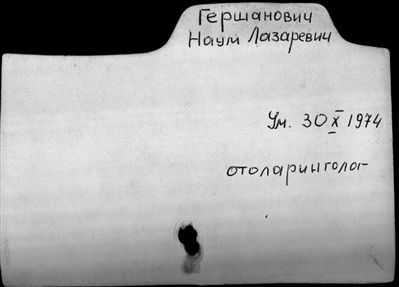 Гершанович
Наум Лазаревич
Ум. 30 X 1974
отоларинголог